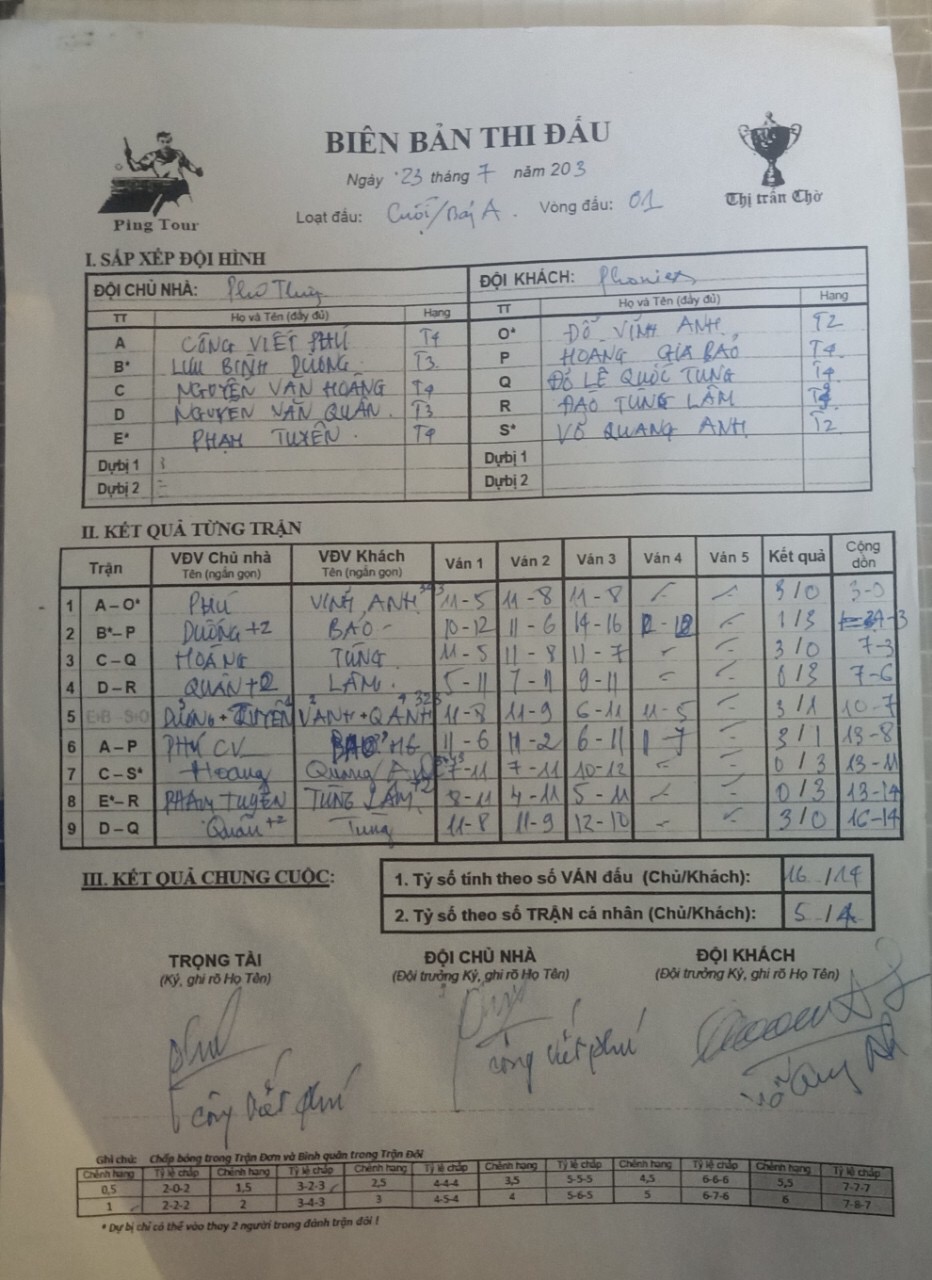 BIÊN BẢN THI ĐẤU
Ping Tour
Thị trấn Chờ
Ngày 23 tháng 7 năm 203
Loạt đấu: Cuối/Bảng A. Vòng đấu: 01
I. SẮP XẾP ĐỘI HÌNH
ĐỘI CHỦ NHÀ: ĐỘI KHÁCH: Phonies
TT Họ và Tên (đầy đủ) Hạng TT Họ và Tên (đầy đủ) Hạng
A CÔNG VIẾT PHÚ T4 O* ĐỖ VĨNH ANH T2
B* LƯU BÌNH DƯƠNG T3 P HOÀNG GIA BẢO T4
C NGUYỄN VĂN HOÀNG T4 Q ĐỖ LÊ QUỐC TÙNG T4
D NGUYỄN VĂN QUÂN T3 R ĐÀO TÙNG LÂM
E* PHẠM TUYÊN T4 S* VÕ QUANG ANH T2
Dự bị 1 Dự bị 1
Dự bị 2 Dự bị 2
II. KẾT QUẢ TỪNG TRẬN
Trận VĐV Chủ nhà Tên (ngắn gọn) VĐV Khách Tên (ngắn gọn) Ván 1 Ván 2 Ván 3 Ván 4 Ván 5 Kết quả Cộng dồn
1 A – O* PHÚ VĨNH ANH 343 11-5 11-8 11-8 3/0 3-0
2 B* – P DƯƠNG+2 BẢO 10-12 11-6 14-16 1/3
3 C – Q HOÀNG TÙNG 11-5 11-8 11-7 3/0 7-3
4 D – R QUÂN+2 LÂM 5-11 7-11 9-11 0/3 7-6
5 E+B S+O DƯƠNG+TUYÊN V ANH+Q ANH 11-8 11-9 6-11 11-5 3/1 10-7
6 A – P PHÚ CV BẢO HG 11-6 11-2 6-11 3/1 13-8
7 C – S* Hoang Quang Anh 7-11 7-11 10-12 0/3 13-11
8 E* – R PHẠM TUYÊN TÙNG LÂM+2 8-11 4-11 5-11 0/3 13-14
9 D – Q Quân+2 Tùng 11-8 11-9 12-10 3/0 16-14
III. KẾT QUẢ CHUNG CUỘC:
1. Tỷ số tính theo số VÁN đấu (Chủ/Khách): 16/14
2. Tỷ số theo số TRẬN cá nhân (Chủ/Khách): 5/4
TRỌNG TÀI ĐỘI CHỦ NHÀ ĐỘI KHÁCH
(Ký, ghi rõ Họ Tên) (Đội trưởng Ký, ghi rõ Họ Tên) (Đội trưởng Ký, ghi rõ Họ Tên)
công viết phú công viết phú
Ghi chú: Chấp bóng trong Trận Đơn và Bình quân trong Trận Đôi
Chênh hạng Tỷ lệ chấp Chênh hạng Tỷ lệ chấp Chênh hạng Tỷ lệ chấp Chênh hạng Tỷ lệ chấp Chênh hạng Tỷ lệ chấp Chênh hạng Tỷ lệ chấp
0,5 2-0-2 1,5 3-2-3 2,5 4-4-4 3,5 5-5-5 4,5 6-6-6 5,5 7-7-7
1 2-2-2 2 3-4-3 3 4-5-4 4 5-6-5 5 6-7-6 6 7-8-7
* Dự bị chỉ có thể vào thay 2 người trong đánh trận đôi !